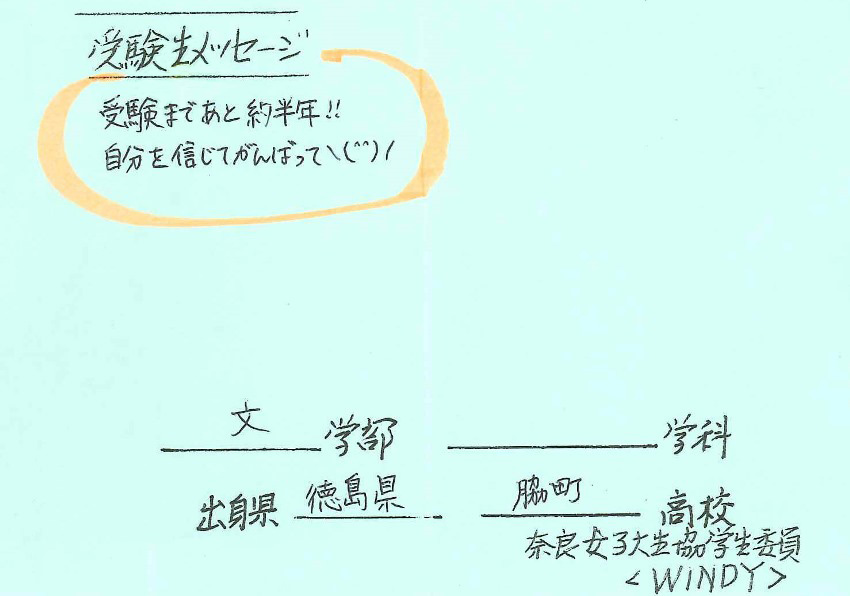 受験生メッセージ
受験まであと約半年!!
自分を信じてがんばって\(^^)/
文 学部 学科
出身県 徳島県 脇町 高校
奈良女子大生協学生委員
<WiNDY>